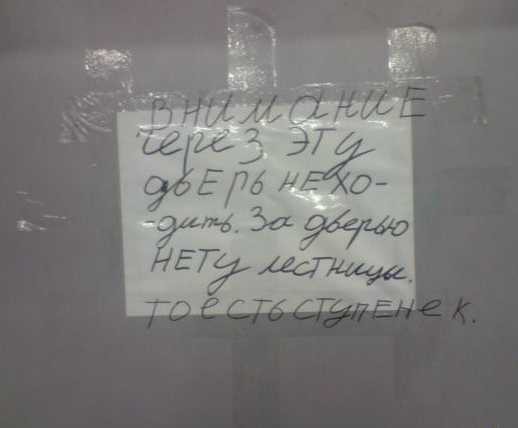 ВНИМАНИЕ
через ЭТУ
ДВЕРЬ НЕ ХО-
-дить. За дверью
НЕТУ лестницы.
ТОЕСТЬ СТУПЕНЕК.